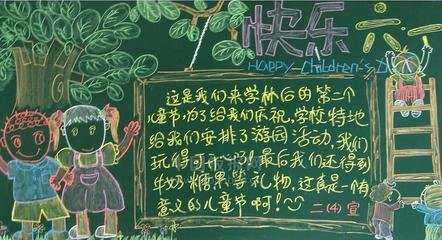 快乐
HAPPY Children's D
这是我们来学校后的第二个
儿童节,为了给我们庆祝,学校特地
给我们安排了游园活动,我们
玩得可开心了!最后我们还得到
牛奶、糖果等礼物,这真是一个有
意义的儿童节啊!
二(4)宣